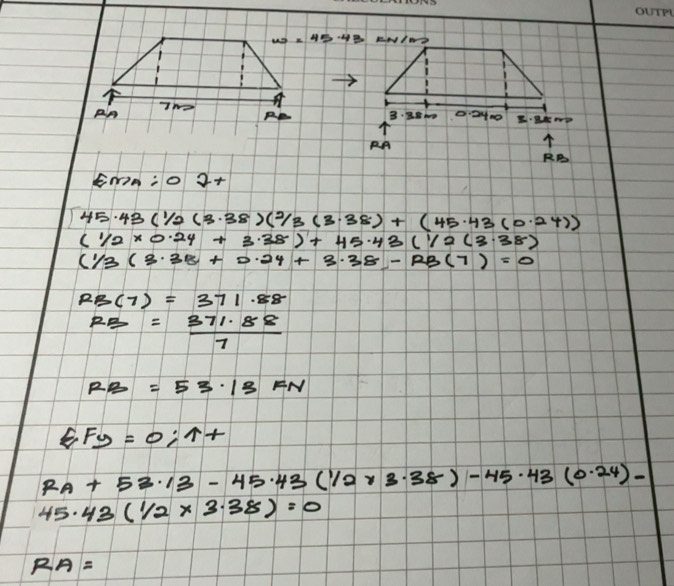 CALCULATIONS
OUTPU
w = 45.43 KN/m
7m
RA RB
3.38m 0.24m 3.38m
RA
RB
ΣMA = 0 ↻+
45.43 (1/2 (3.38) (2/3 (3.38) + (45.43 (0.24))
(1/2 × 0.24 + 3.38) + 45.43 (1/2 (3.38)
(1/3 (3.38 + 0.24 + 3.38 - RB(7) = 0
RB(7) = 371.88
RB = 371.88
7
RB = 53.13 KN
ΣFy = 0; ↑+
RA + 53.13 - 45.43 (1/2 × 3.38) - 45.43 (0.24) -
45.43 (1/2 × 3.38) = 0
RA =